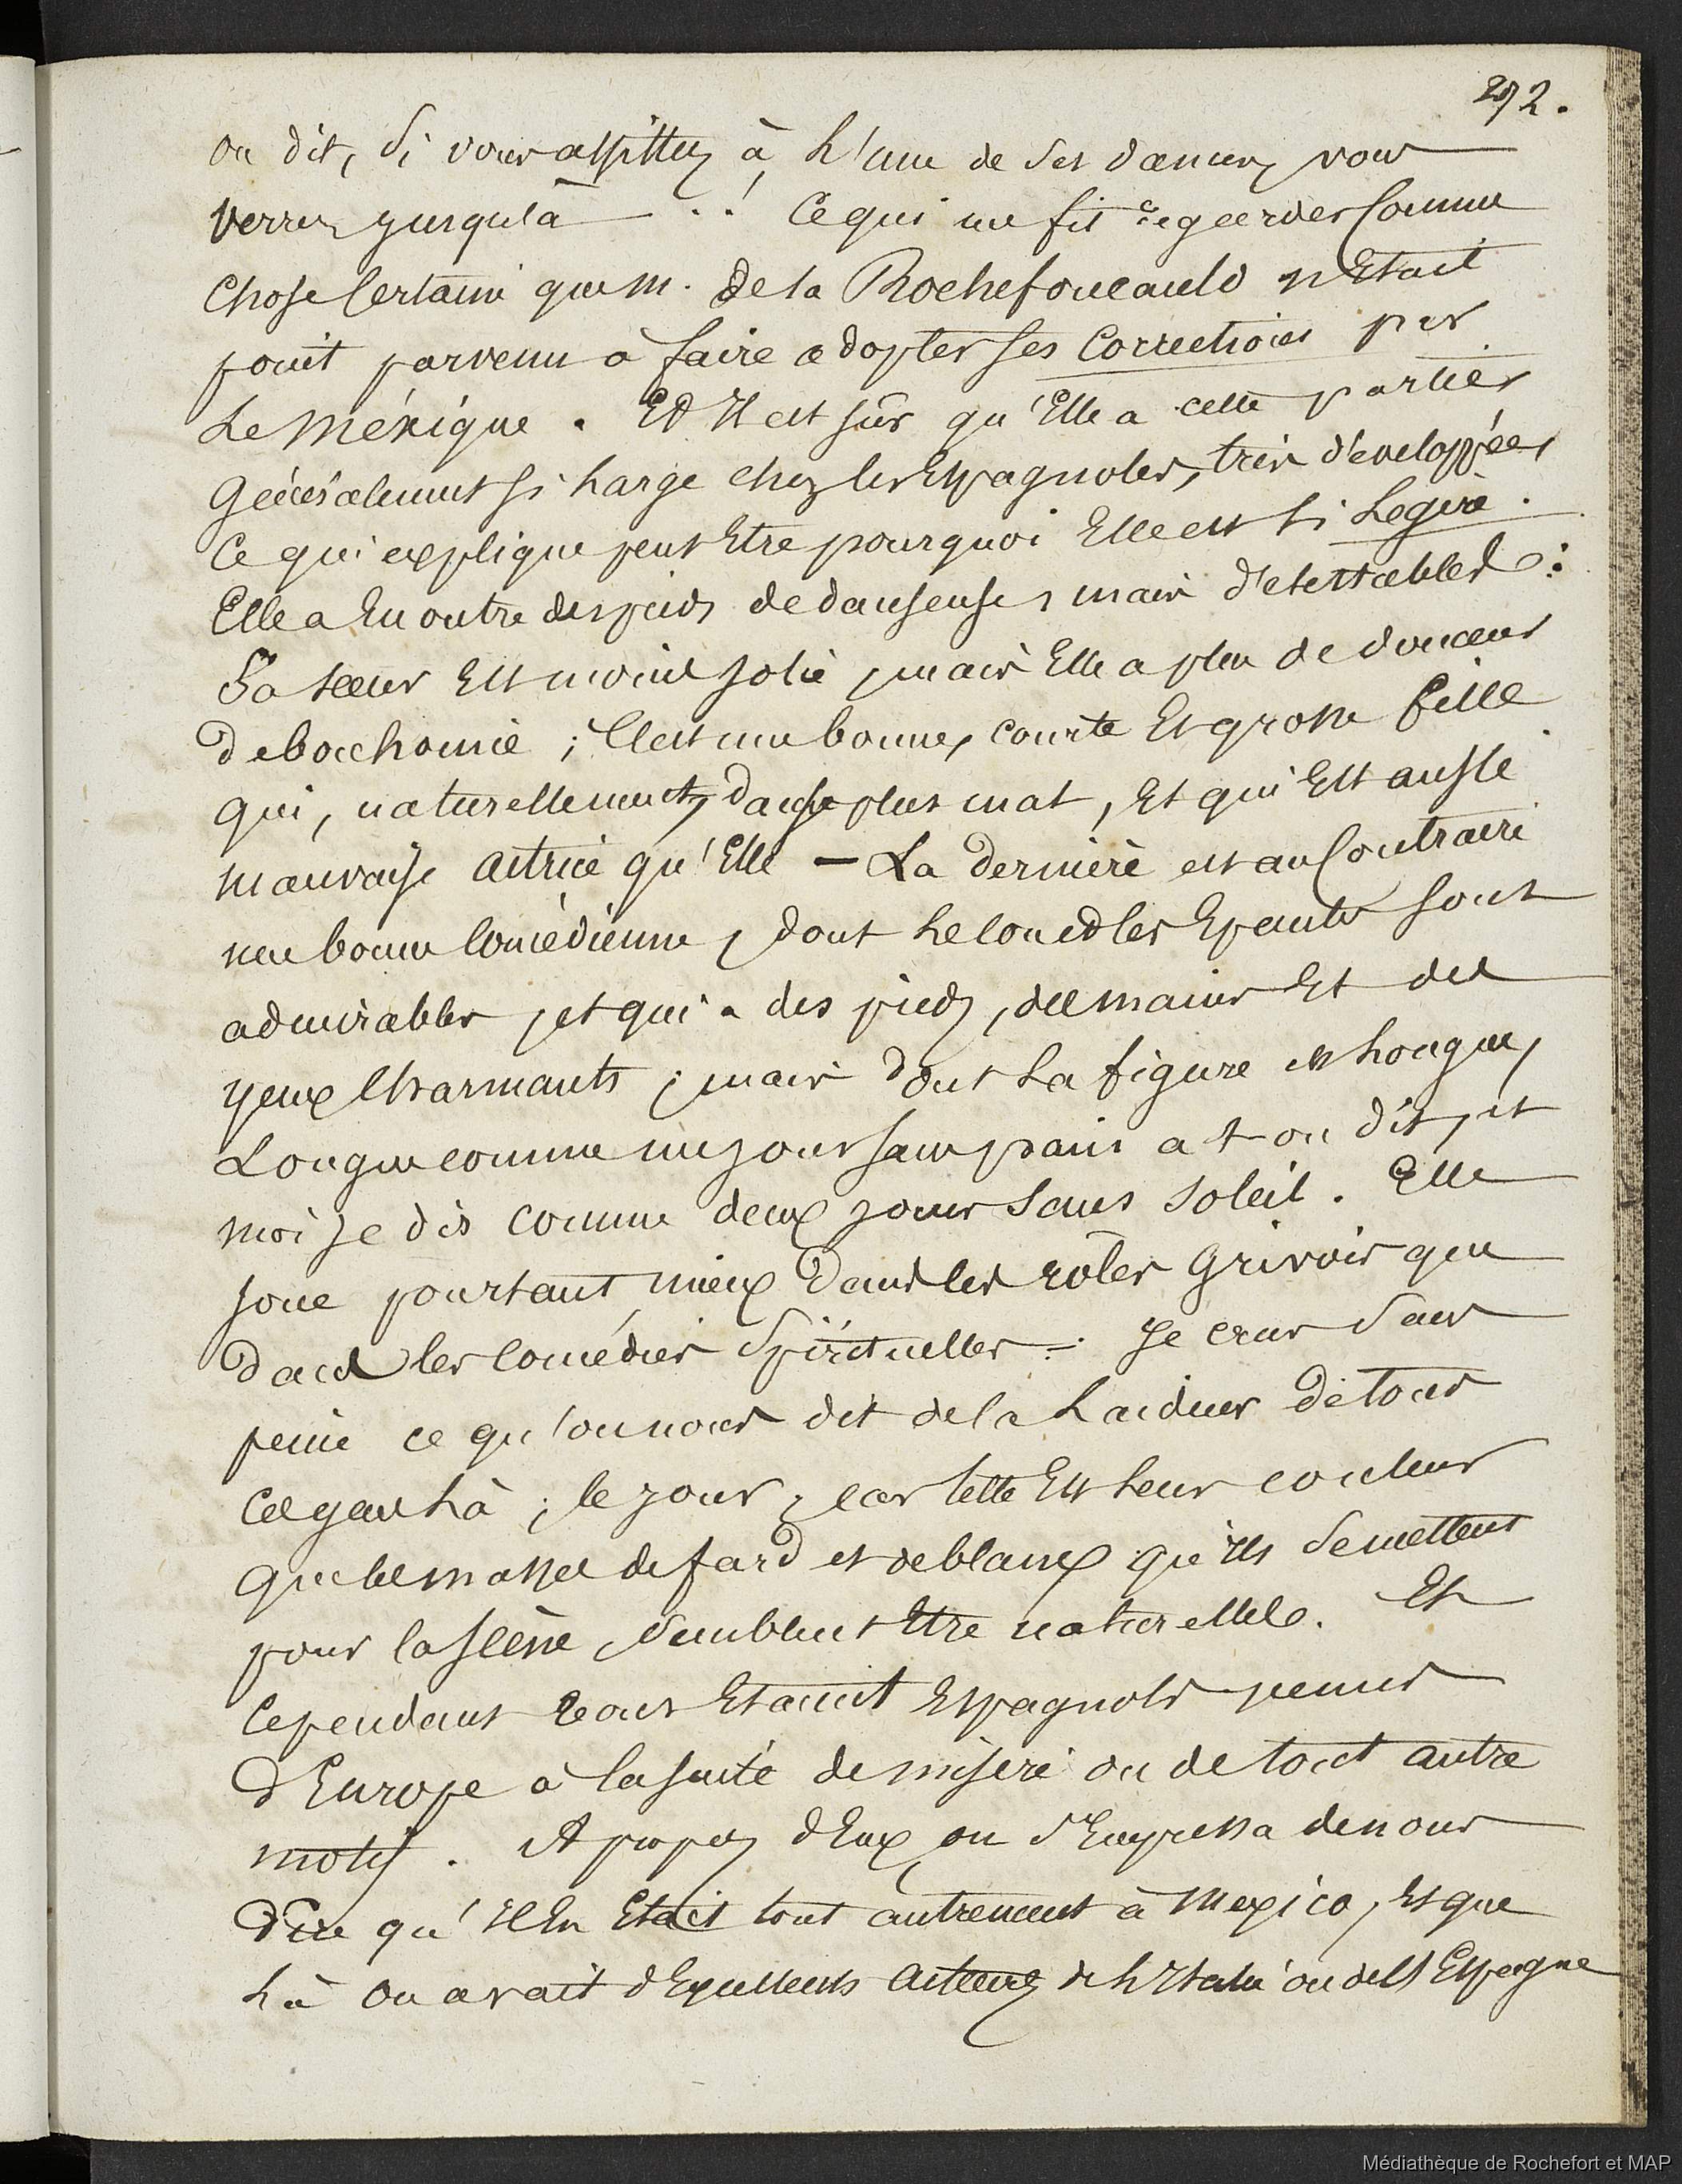 292.
on dit, si vous assistez à l'une de ses danses, vous
verrez jusque là — . . ! Ce qui me fit regarder comme
chose certaine que M. de la Rochefoucauld n'était
point parvenu à faire adopter ses corrections par
le Méxique. Et Il est sûr qu'Elle a cette parties
Généralement si large chez les Espagnoles, très développées
Ce qui explique peut Etre pourquoi Elle est si Legère.
Elle a En outre des pieds de danseuses mais détestables :
Sa sœur Est moins jolie, mais Elle a plus de douceur
de bonhomie ; C'est une bonne, courte Et grosse fille
qui, naturellement, danse plus mal, Et qui Est aussi
mauvaise actrice qu'Elle — La dernière est au Contraire
une bonne Comédienne, dont le cou et les Epaules sont
admirables, et qui a des pieds, des mains Et des
yeux Charmants ; mais dont la figure est longue,
Longue comme un jour sans pain a t-on dit, et
moi je dis comme deux jours sans soleil. Elle
joue pourtant mieux dans les rôles Grivois que
dans les Comédies Spirituelles. Je crus sans
peine ce qu'on nous dit de la laideur de tous
ces gens là, le jour, car telle Est leur couleur
que les masses de fard et de blanc qu'ils se mettent
pour la scène, semblent Etre naturelles. Et
Cependant tous Etaient Espagnols venus
d'Europe à la suite de misère ou de tout autre
motif. A propos d'Eux on s'Empressa de nous
dire qu'Il En Etait tout autrement à Mexico, Et que
là on avait d'Excellents acteurs de l'Italie ou de l'Espagne
Médiathèque de Rochefort et MAP